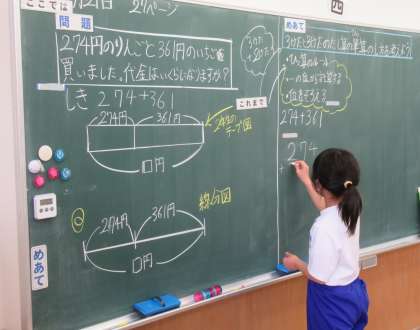 ここでは
月21日 27ページ
問題
274円のりんごと361円のいちごを
買いました。代金はいくらになりますか?
しき 274+361
274円 361円
2年生の
テープ図
□円
◎
線分図
274円 361円
□円
めあて
四
めあて
3けた
+2けた
これまで
・ひっ算のルール
・一の位から計算する
・位をそろえる
274+361
274